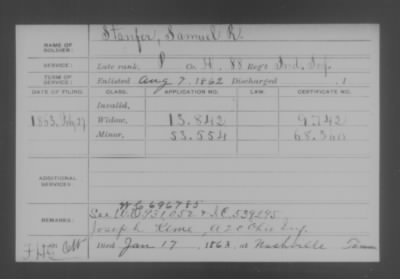 NAME OF SOLDIER: Stanfer, Samuel R.
SERVICE: Late rank, P Co. H, 88 Reg't Ind. Inf.
TERM OF SERVICE: Enlisted Aug 7, 1862 Discharged , 1
DATE OF FILING. CLASS. APPLICATION NO. LAW. CERTIFICATE NO.
Invalid,
1863, July 27 Widow, 13.842 9.742
Minor, 53.554 68.360
ADDITIONAL SERVICES:
WC 696785
REMARKS: See W.O. 931052 & I.C. 539295
Joseph Ohio Inf.
Died Jan 17, 1863, at Nashville Tenn